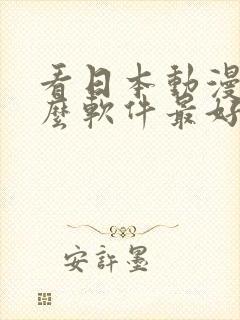 看日本動漫
麼軟件最好
安許墨